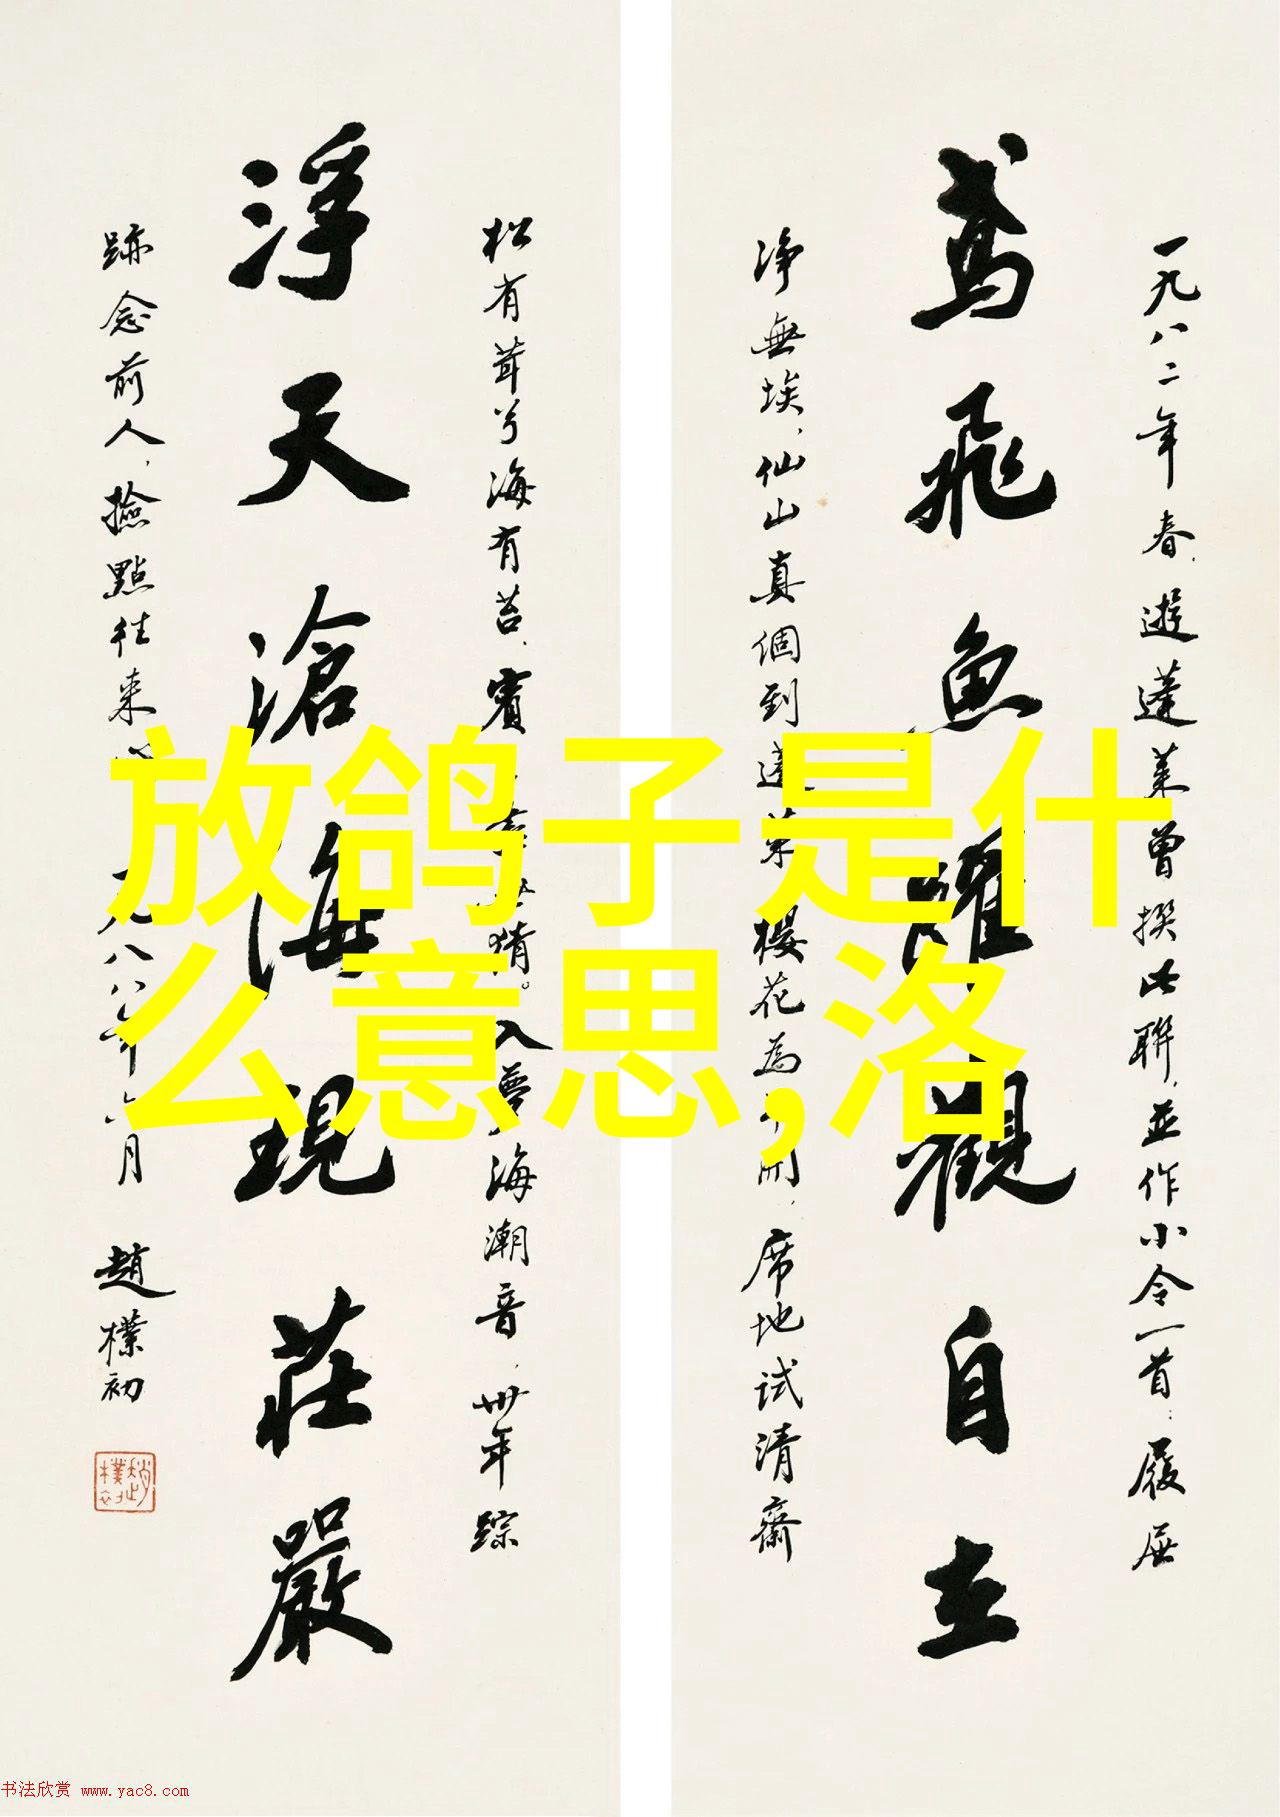 一九八二年春，遊蓬莱曾撰此聯，並作小令一首：履居
鳶飛魚躍觀自在
净無埃，仙山真個到蓬莱
櫻花為
開，席地試清齋
松有茸兮海有苔，賓
猜。入夢海潮音，卅年踪
浮天滄海現莊嚴
跡念前人，撿點往来
一九八八年六月 趙樸初
放鸽子是什
么意思,洛
书法欣赏 www.yac8.com